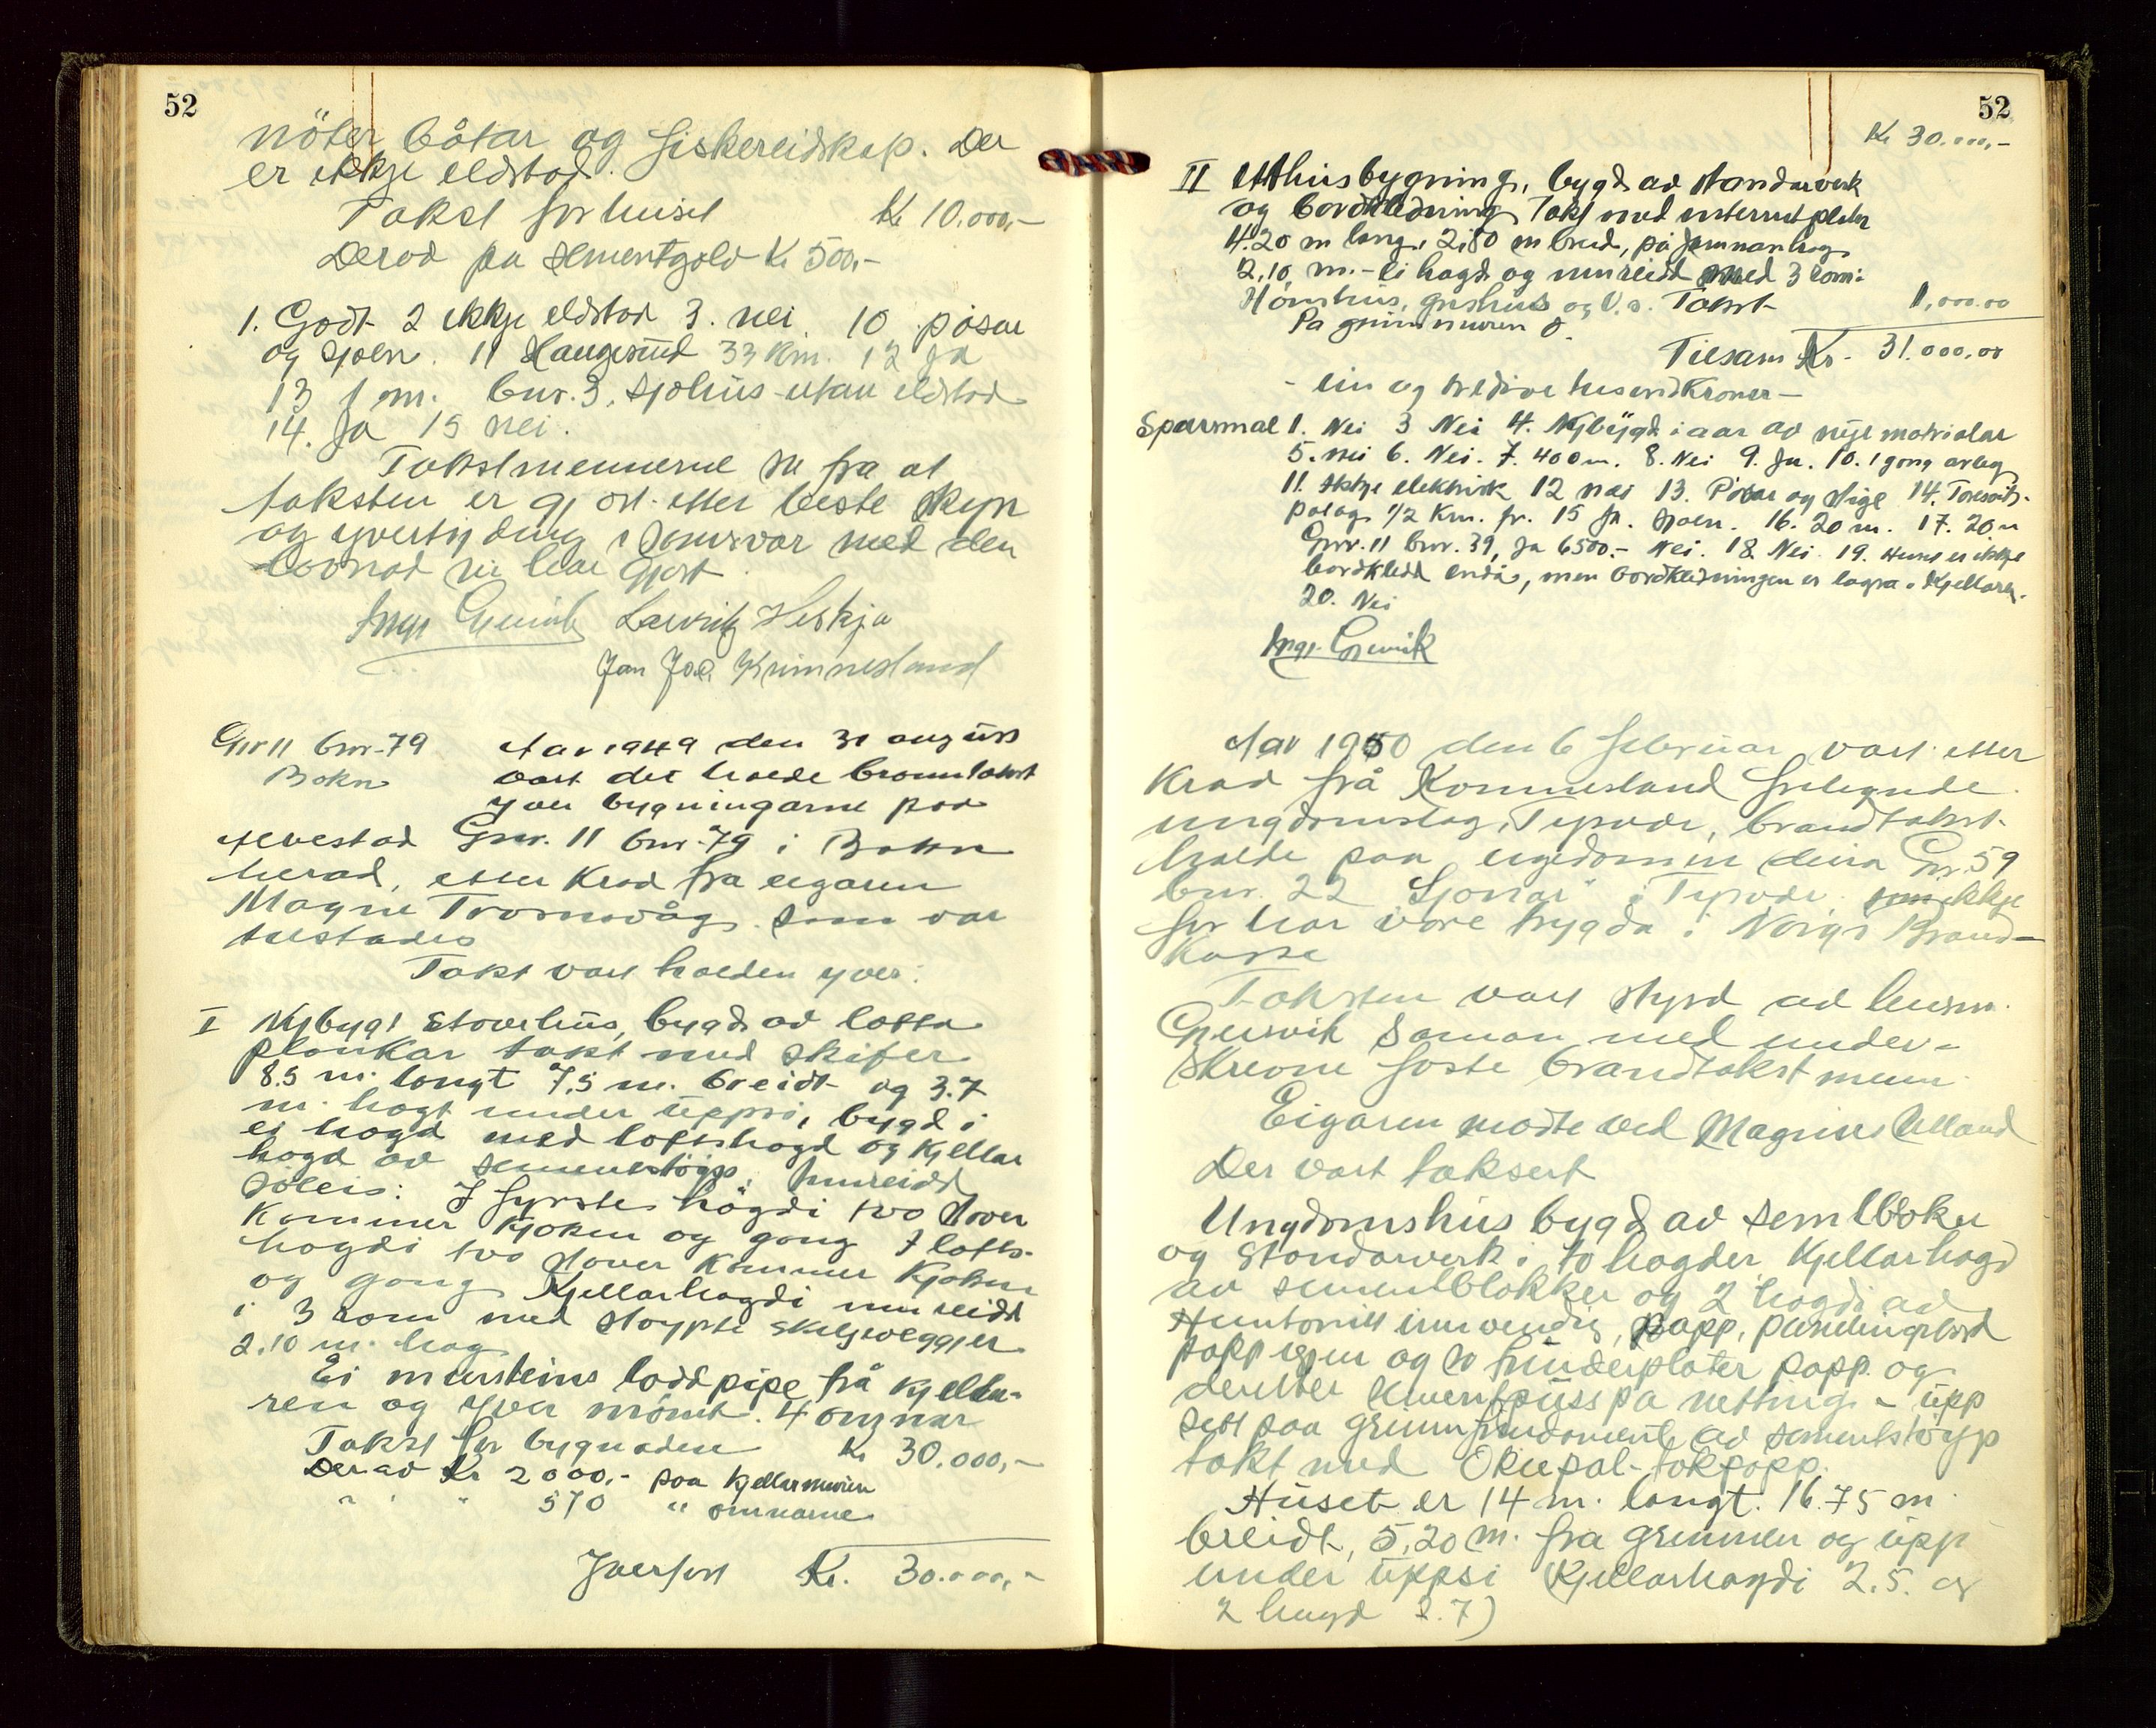 52
nöter, båtar og fiskereidskap. Der
er ikkje eldstad.
Takst for huset Kr 10.000,-
Derav på sementgolv Kr 500,-
1. Godt 2 ikkje eldstad 3. nei. 10 pøsar
og sjøen. 11 Haugesund 33 km. 12 Ja
13 1 m. bnr. 3, sjøhus utan eldstad
14. Ja 15 nei.
Takstmennerne fra at
taksten er gjort etter beste skyn
og yvertyding i samsvar med den
lovnad me har gjort
Lauritz Heskja
Jan Joa. Krimnesland
Gnr 11 bnr. 79 Aar 1949 den 31 august
Bokn vart det halde branntakst
yver bygningarne paa
Alvestad Gnr. 11 bnr. 79 i Bokn
herad, etter krav fra eigaren
Magne Trosnavåg som var
tilstades
Takst vart halden yver:
I Nybygt stovehus, bygd av lafta
plankar takt med skifer
8.5 m. langt 7,5 m. breidt og 3.7
m. høgt under uppsi, bygd i
ei høgd med loftshøgd og kjellar
høgd av sementstøyp. Innreidd
soleis: I fyrste høgdi two stover
kammer kjøken og gang I lofts-
høgdi two stover kammer kjøken
og gang Kjellarhøgdi innreidd
i 3 rom med støypte skiljevegger
2.10 m. høg
Ei mursteins loddpipe frå kjella-
ren og yver mønet. 4 omnar
Takst for bygnaden Kr 30.000,-
Derav Kr 2000,- paa kjellarmuren
" " " 570 " omnarne
Yverført Kr. 30.000,-
52
Kr 30.000,-
II Uthusbygning, bygd av standarverk
og bordkledning Takt med eternitplater
4.20 m lang, 2,80 m breid, på
2,10 m. - ei høgd og innreidd med 3 rom:
Hønshus, grishus og V.s. Takst 1,000.00
På grunnmuren 0.
Tilsam Kr. 31.000,00
- ein og tredive tusend kroner -
Spørsmål 1. Nei 3 Nei 4. Nybygd i aar av nye matrialar
5. nei 6. Nei. 7. 400 m. 8. Nei 9. Ja. 10. 1 gong arleg
11. ikkje elektrisk 12 nei 13. Pøsar og stige 14.
1/2 Km. fr. 15 Ja. sjøen. 16. 20 m. 17. 20 m
Gnr. 11 bnr. 39, Ja 6500.- Nei. 18. Nei 19. Huset er ikkje
bordkledd endå, men bordkledningen er lagra i kjellaren.
20. Nei
Aar 1950 den 6 februar vart etter
krav frå Kommesland frilynde
ungdomslag, Tysvær, brandtakst
halde paa eigedomen deira Gnr. 59
bnr. 22 " i Tysvær som ikkje
før har vore trygda i Norges Brand-
kasse
Taksten vart styrd av lensm.
Gjervik saman med under-
skrevne faste brandtakstmenn.
Eigaren møtte ved Magnus Alland
Der vart taksert
Ungdomshus bygd av sembloker
og standarverk i to høgder Kjellarhøgd
av sementblokker og 2 høgdi av
Huntonitt innvendig, papp, panelingsbord
papp igjen og so hunderplater papp og
deretter sementpuss på netting - upp
sett paa grunnfundament av sementstøyp
takt med takpapp.
Huset er 14 m. langt. 16.75 m
breidt, 5,20 m. fra grunnen og upp
under uppsi (Kjellarhøgdi 2.5. og
2 høgd 2.7)